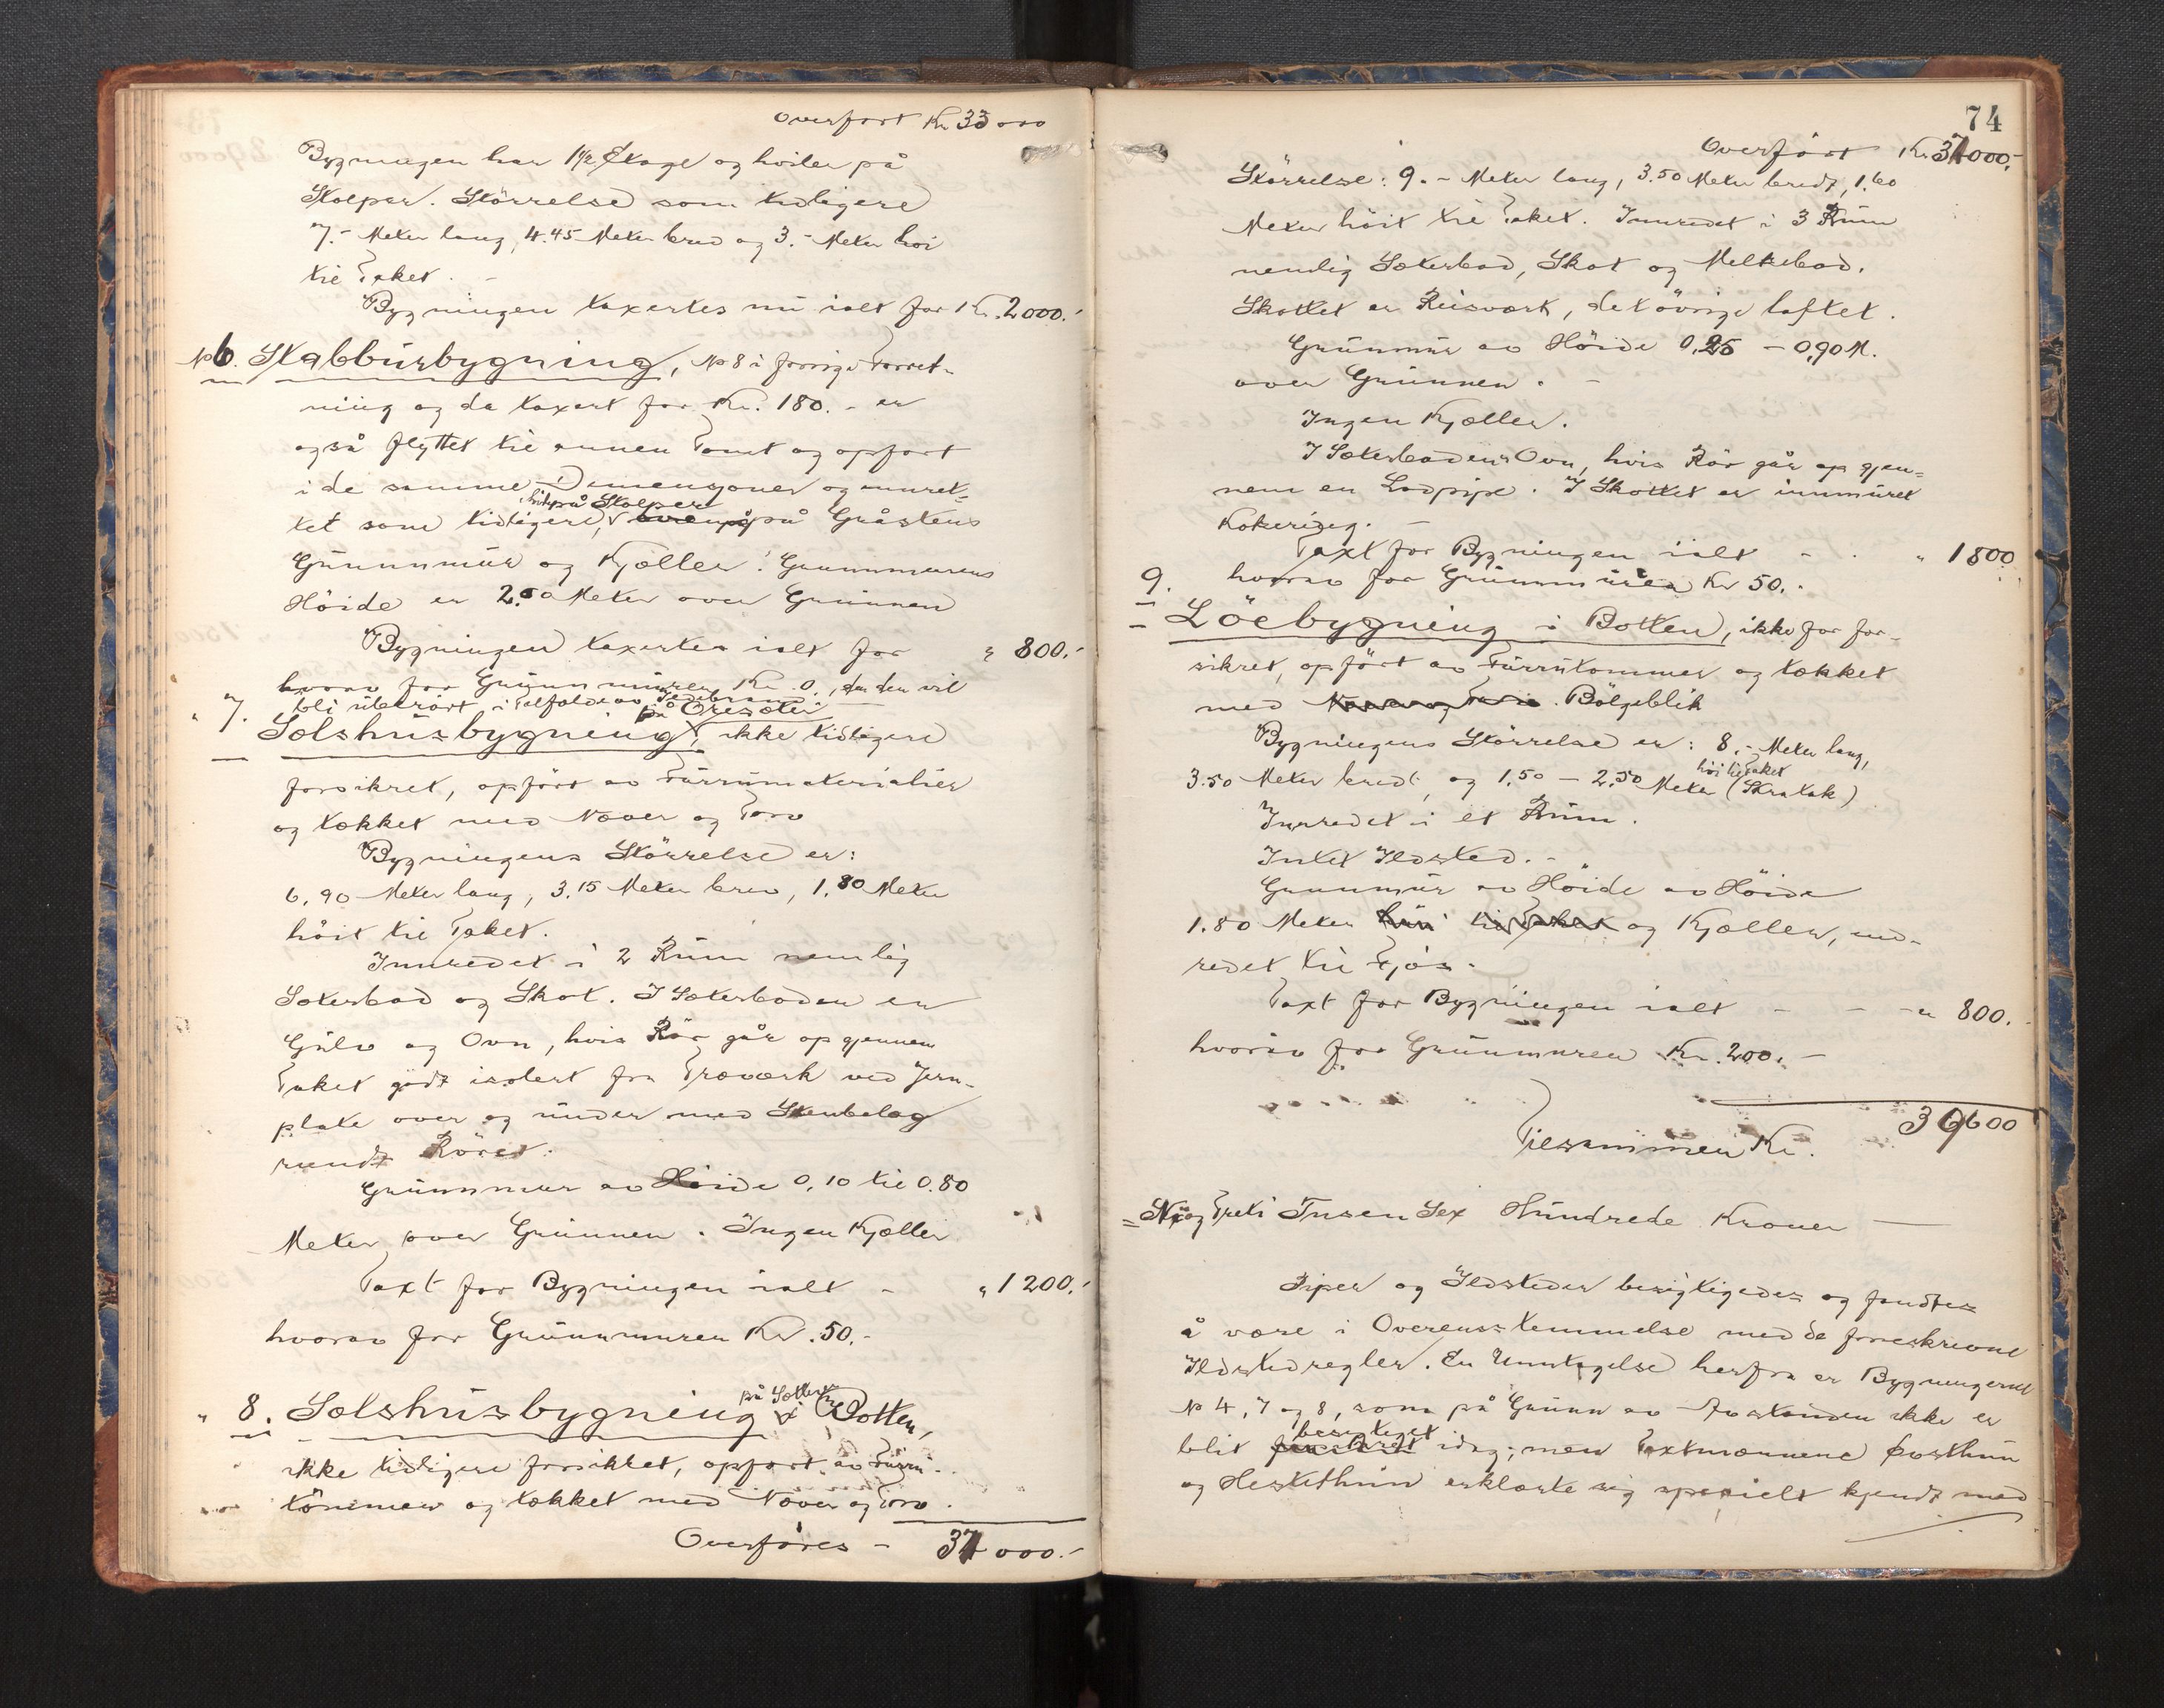 Overført Kr 33 000
Bygningen har 1 1/2 Etage og hviler på
Stolper. Størrelse som tidligere
7.- Meter lang, 4.45 Meter bred og 3.- Meter høi
til Taket. -
Bygningen taxertes nu ialt for Kr. 2000.-
№ 6. Stabbursbygning, № 8 i forrige Forret-
ning og da taxert for Kr. 180.- er
også flyttet til annen Tomt og opført
i de samme Dimensjoner og innret-
tet som tidligere, på Stolper på Gråstens
Grunnmur og Kjeller. Grunnmurens
Høide er 2.50 Meter over Grunnen
Bygningen taxertes ialt for " 800.-
hvorav for Grunnmuren Kr. 0, da den vil
bli uberørt i Tilfelde av Ildebrann.
" 7. Selshusbygning, på Oresæter ikke tidligere
forsikret, opført av Furumaterialier
og tækket med Næver og Torv
Bygningens Størrelse er:
6,90 Meter lang, 3.15 Meter bred, 1.80 Meter
høit til Taket.
Innredet i 2 Rum nemlig
Sæterbod og Skot. I Sæterboden er
Gulv og Ovn, hvis Rør går op gjennem
Taket godt isolert fra Træværk ved Jern-
plate over og under med Stenbelag
rundt Røret.
Grunnmur av Høide 0,10 til 0.80
Meter over Grunnen. Ingen Kjeller
Taxt for Bygningen ialt - " 1200.-
hvorav for Grunnmuren Kr. 50.-
" 8. Selshusbygning på Sætteren Botten,
ikke tidligere forsikket, opført av Furu-
tømmer og tækket med Næver og Torv.
Overføres - 37 000.-
74
Overført Kr. 37000.-
Størrelse: 9.- Meter lang, 3.50 Meter bredt, 1.60
Meter høit til Taket. Innredet i 3 Rum
nemlig Sæterbod, Skot og Melkebod.
Skottet er Reisværk, det øvrige laftet.
Grunnmur av Høide 0,25 - 0,90 M.
over Grunnen. -
Ingen Kjæller.
I Sæterboden Ovn, hvis Rør går op gjen-
nem en Lodpipe. I Skottet er innmuret
Taxt for Bygningen ialt - - " 1800
hvorav for Grunnmuren Kr 50.-
9. Løebygning i Botten, ikke før for-
sikret, opført av Furrutømmer og tækket
med Næver og Torv. Bølgeblik
Bygningens Størrelse er: 8.- Meter lang,
3.50 Meter bredt, og 1.50 - 2.50 Meter høi til Taket (Skratak)
Innredet i et Rum.
Intet Ildsted. -
Grunnmur av Høide av Høide
1.80 Meter høi til Taket og Kjæller, inn-
redet til Fjøs.
Taxt for Bygningen ialt - - - " 800.
hvorav for Grunnmuren Kr. 200.-
39600
Tilsammen Kr.
= Ni og Treti Tusen Sex Hundrede Kroner -
Piper og Ildsteder besigtigedes og fandtes
å være i Overensstemmelse med de foreskrevne
Ildstedregler. En Unntagelse herfra er Bygningerne
№ 4, 7 og 8, som på Grunn av Avstanden ikke er
blit besigtiget idag; men Taxtmænnene Østhun
og Hestethun erklærte sig specielt kjendt med